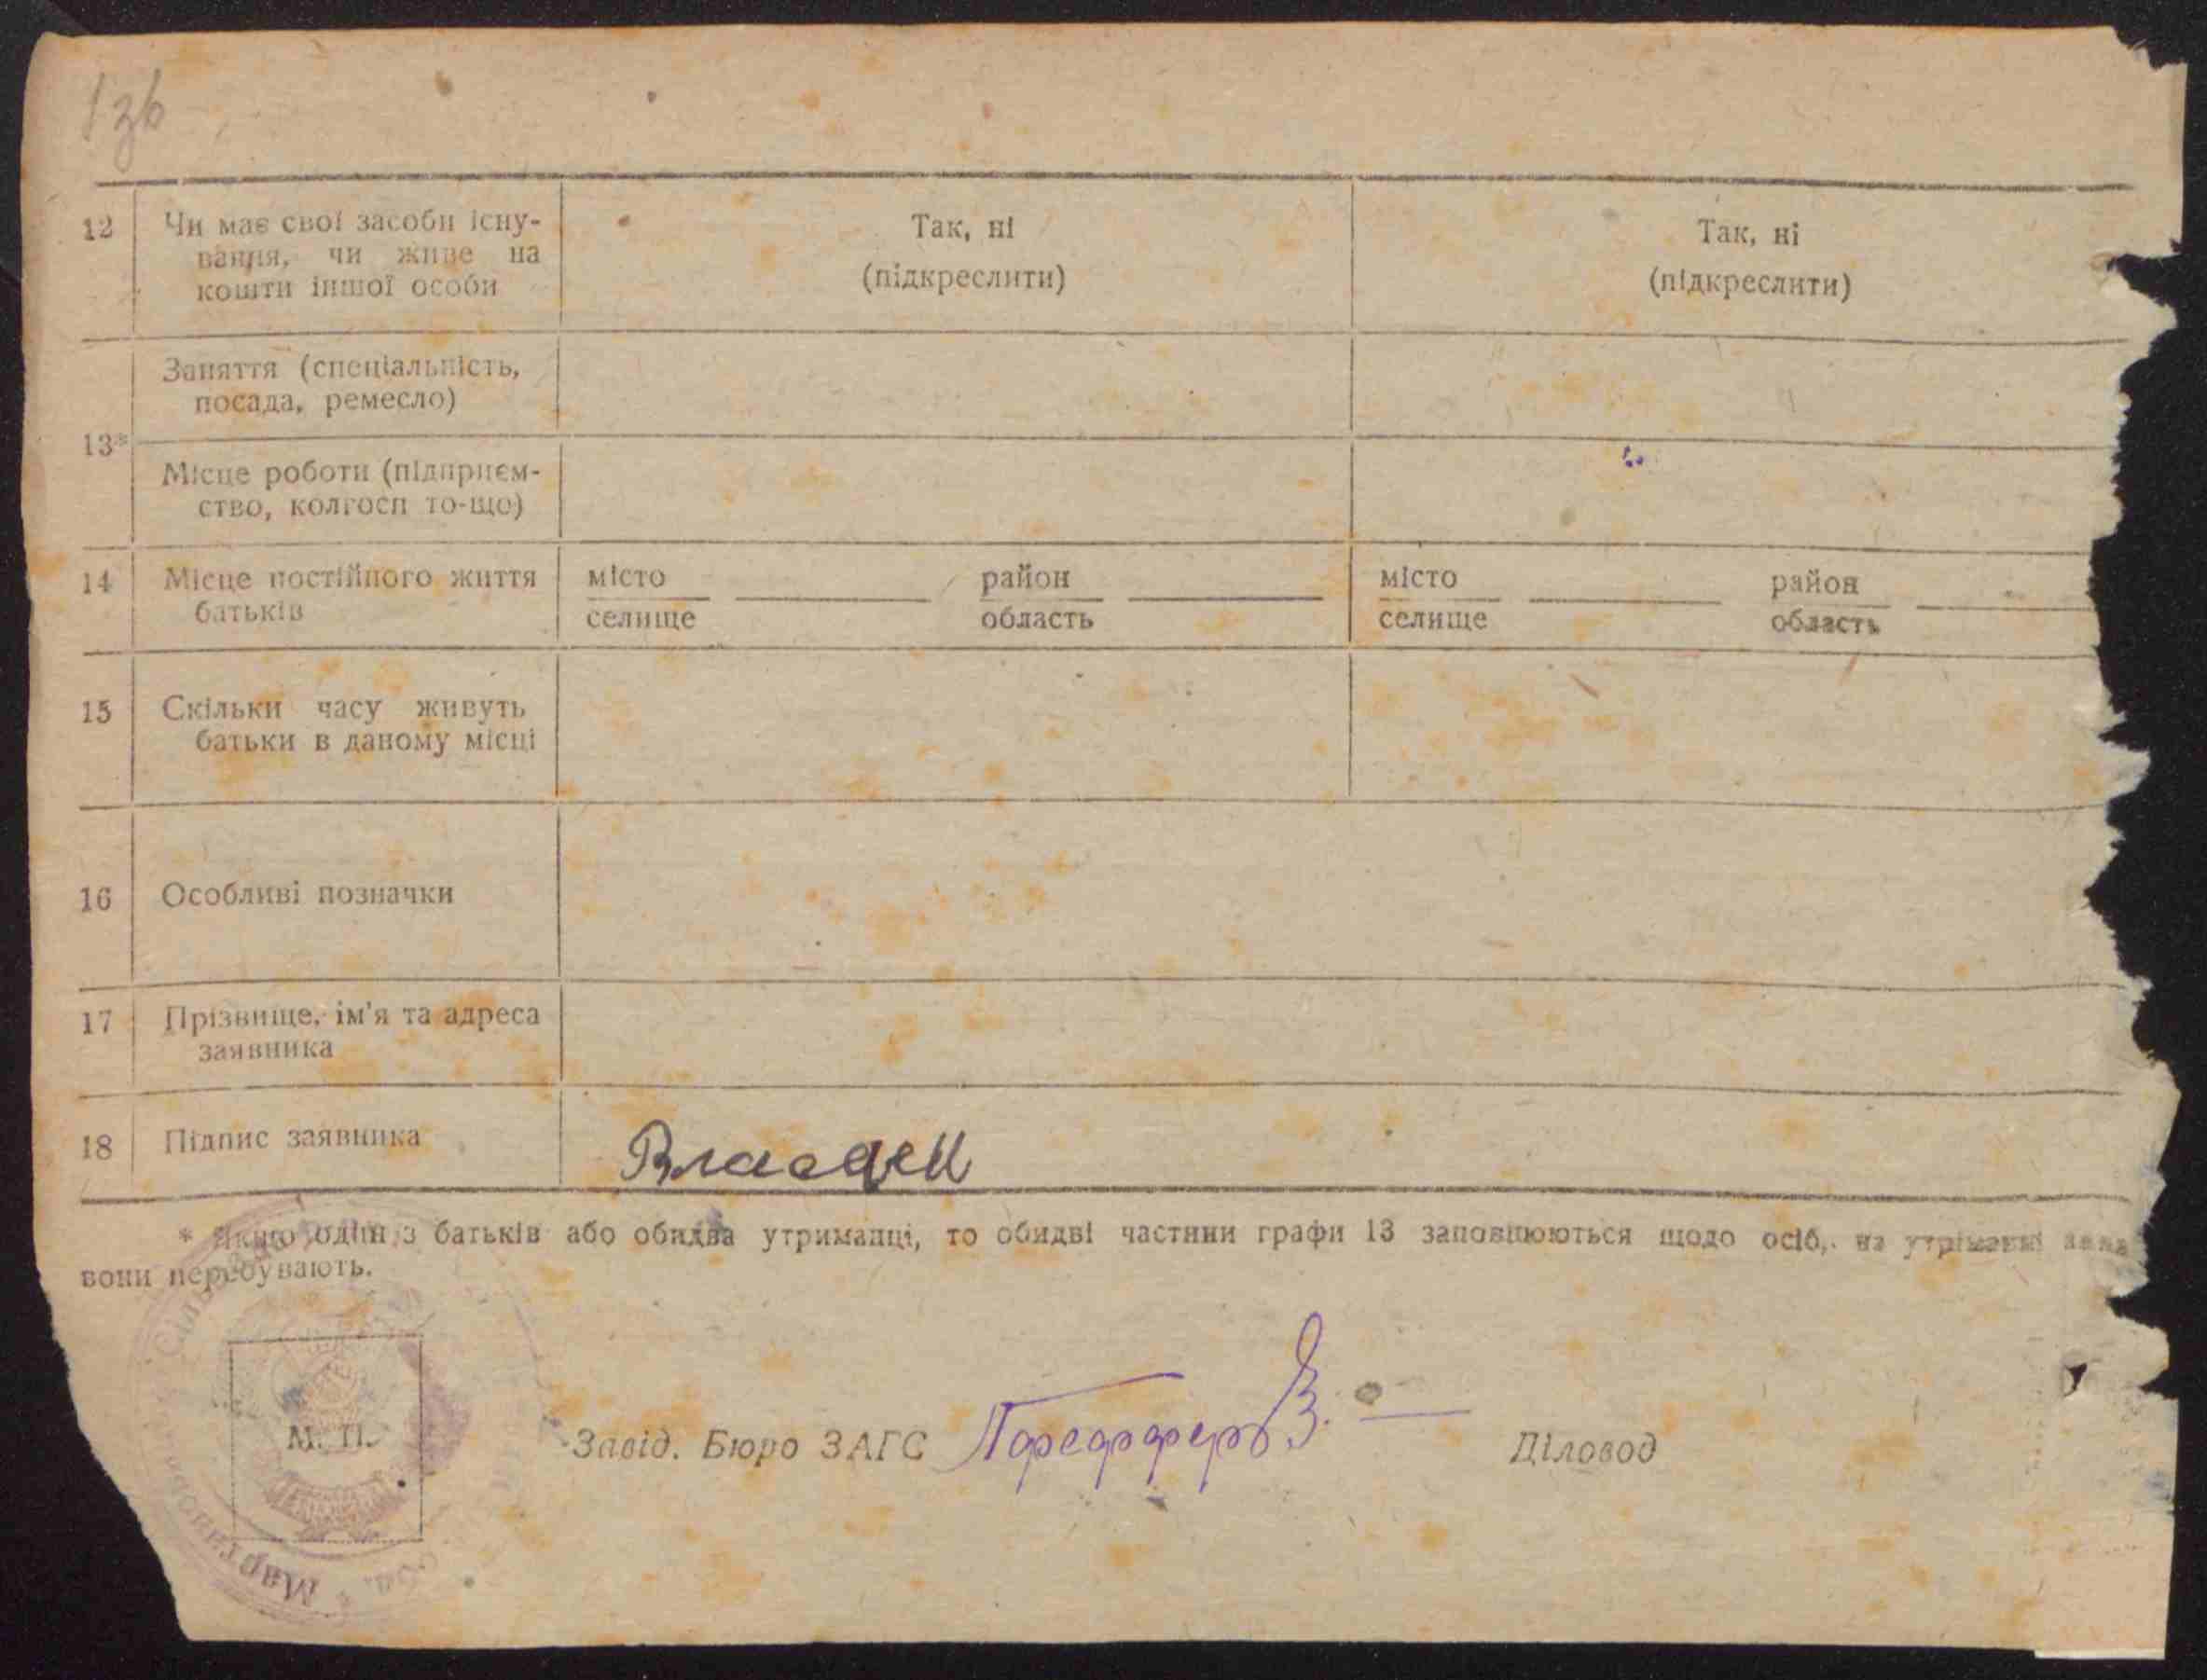 13б
12 Чи має свої засоби існу- Так, ні Так, ні
вання, чи живе на (підкреслити) (підкреслити)
кошти іншої особи
Заняття (спеціальність,
посада, ремесло)
13*
Місце роботи (підприєм-
ство, колгосп то-що)
14 Місце постійного життя місто район місто район
батьків селище область селище область
15 Скільки часу живуть
батьки в даному місці
16 Особливі позначки
17 Прізвище, ім'я та адреса
заявника
18 Підпис заявника
* Якщо один з батьків або обидва утриманці, то обидві частини графи 13 заповнюються щодо осіб, на утриманні яких
вони перебувають.
М. П.
Завід. Бюро ЗАГС Діловод